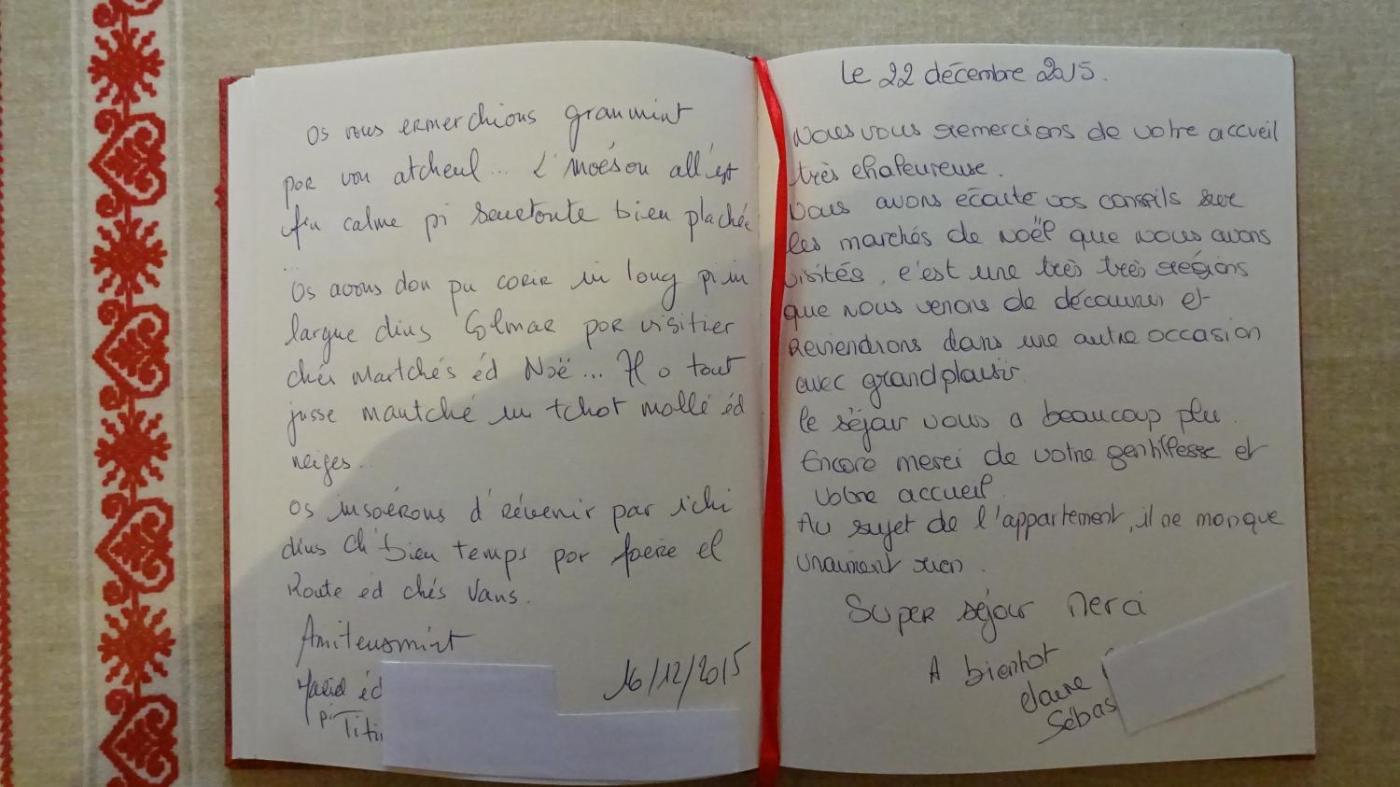 Os vous ermerchions granmint
por vou atcheul... L'Moéson all'est
fin calme pi seurtoute bien plachée
...
Os avons don pu corir in long pi in
largue dins Colmar por visitier
chés Martchés éd Noë... Il o tout
jusse mantché in tchot mollé éd
neiges.
Os inspérons d'révenir par ichi
dins ch'bien temps por foere el
Route éd chés Vans.
Amiteusmint
éd
pi Titi
16/12/2015
Le 22 décembre 2015.
Nous vous remercions de votre accueil
très chaleureuse.
Nous avons écouté vos conseils sur
les marchés de Noël que nous avons
visités, c'est une très très régions
que nous venons de découvrir et
Reviendrons dans une autre occasion
avec grand plaisir
le séjour nous a beaucoup plu.
Encore merci de votre gentillesse et
votre accueil.
Au sujet de l'appartement, il ne manque
vraiment rien.
Super séjour Merci
A bientot
Claire
Sébas